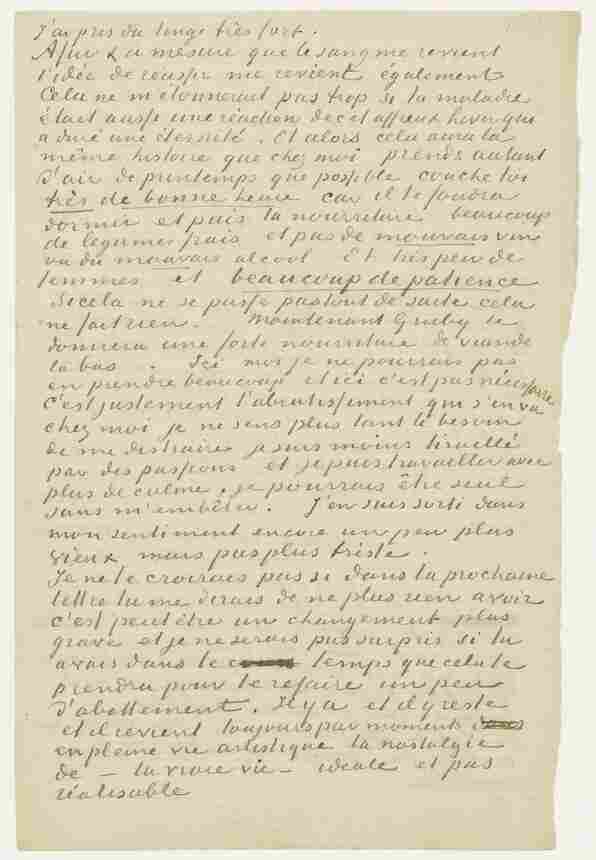 J'ai pris du linge très fort.
A fur & a mesure que le sang me revient
l'idée de reussir me revient également
Cela ne m'étonnerait pas trop si ta maladie
était aussi une réaction de cet affreux hiver qui
a duré une éternité. Et alors cela aura la
même histoire que chez moi prends autant
d'air de printemps que possible couche toi
très de bonne heure car il te faudra
dormir et puis la nourriture beaucoup
de legumes frais et pas de mauvais vin
ou du mauvais alcool Et très peu de
femmes et beaucoup de patience
Si cela ne se passe pas tout de suite cela
ne fait rien. Maintenant Gruby te
donnera une forte nourriture de viande
là bas. Ici moi je ne pourrais pas
en prendre beaucoup et ici c'est pas nécessaire
C'est justement l'abrutissement qui s'en va
chez moi je ne sens plus tant le besoin
de me distraire je suis moins tiraillé
par des passions et je puis travailler avec
plus de calme, je pourrais être seul
sans m'embêter. J'en suis sorti dans
mon sentiment encore un peu plus
vieux mais pas plus triste.
Je ne te croirais pas si dans ta prochaine
lettre tu me dirais de ne plus rien avoir
c'est peut être un changement plus
grave et je ne serais pas surpris si tu
avais dans le temps que cela te
prendra pour te refaire un peu
d'abattement. Il y a et il y reste
et il revient toujours par moments
en pleine vie artistique la nostalgie
de – la vraie vie – ideale et pas
réalisable